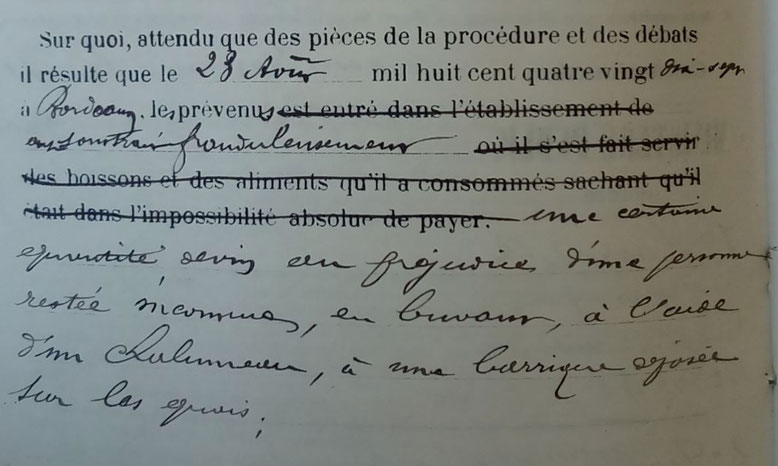 Sur quoi, attendu que des pièces de la procédure et des débats
il résulte que le 28 Août mil huit cent quatre vingt dix-sept
à Bordeaux, les prévenus est entré dans l'établissement de
ont soustrait frauduleusement où il s'est fait servir
des boissons et des aliments qu'il a consommés sachant qu'il
était dans l'impossibilité absolue de payer. une certaine
quantité de vin au préjudice d'une personne
restée inconnue, en buvant, à l'aide
d'un chalumeau, à une barrique déposée
sur les quais;